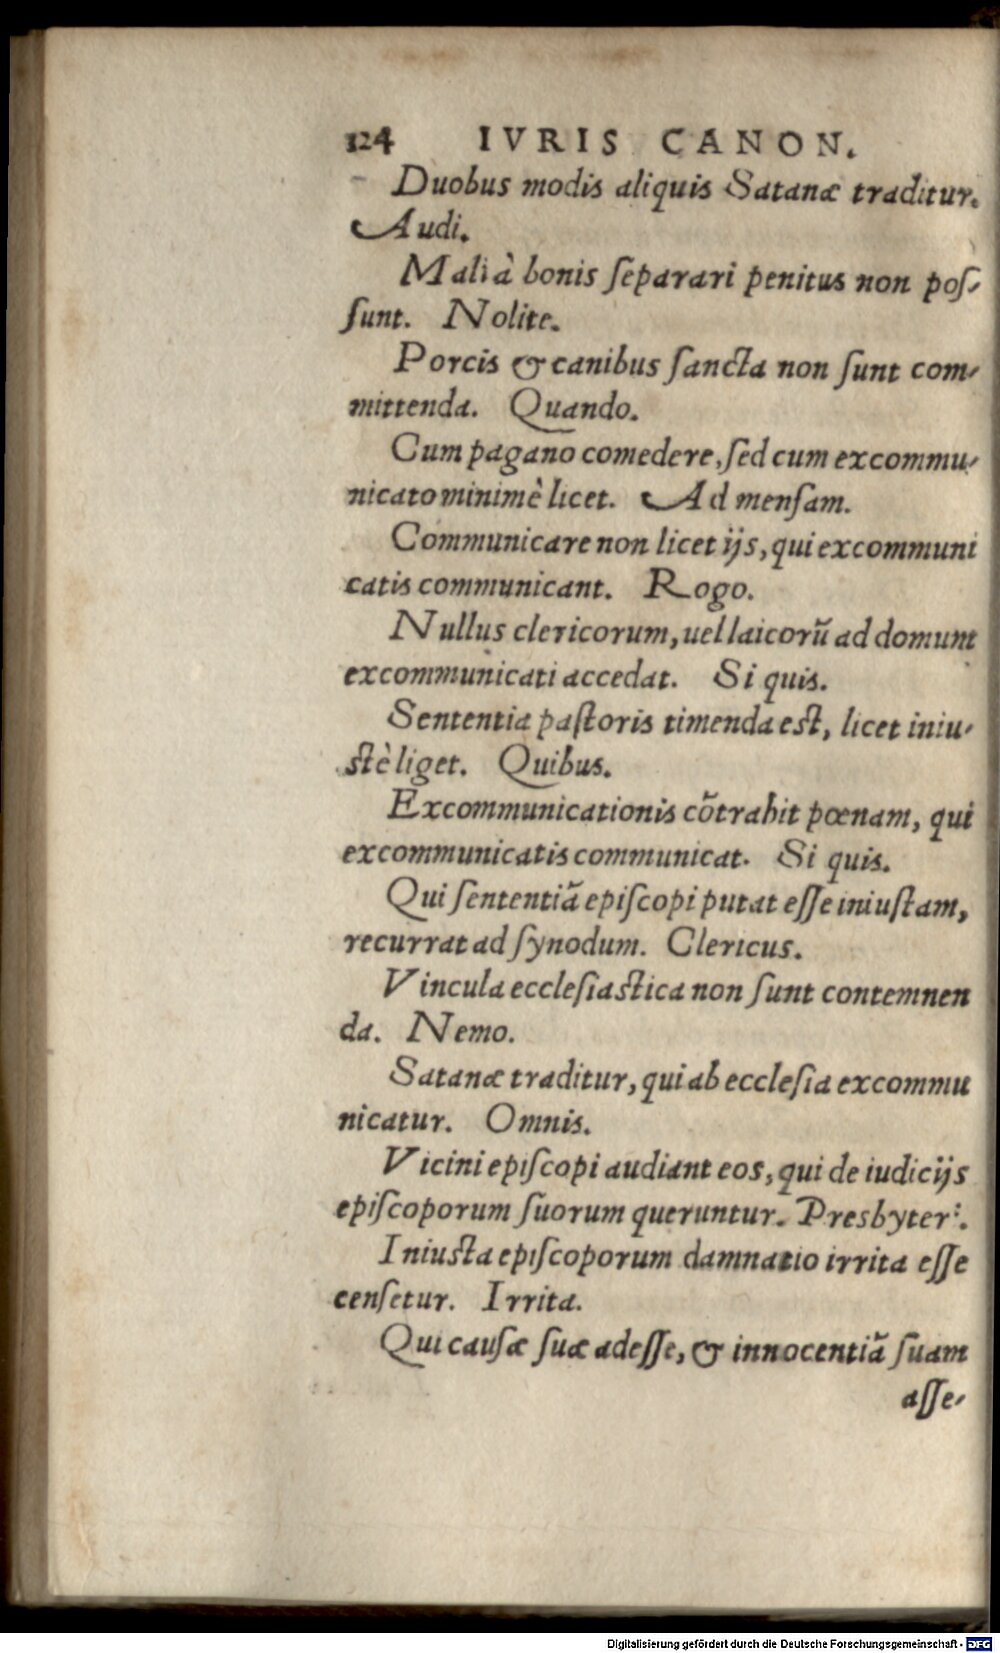 124 IVRIS CANON.
Duobus modis aliquis Satanæ traditur.
Audi.
Mali à bonis ſeparari penitus non poſ-
ſunt. Nolite.
Porcis & canibus ſancta non ſunt com-
mittenda. Quando.
Cum pagano comedere, ſed cum excommu-
nicato minimè licet. Ad menſam.
Communicare non licet ijs, qui excommuni
catis communicant. Rogo.
Nullus clericorum, uel laicorũ ad domum
excommunicati accedat. Si quis.
Sententia paſtoris timenda est, licet iniu-
stè liget. Quibus.
Excommunicationis cõtrahit pœnam, qui
excommunicatis communicat. Si quis.
Qui ſententiã epiſcopi putat eſſe iniuſtam,
recurrat ad ſynodum. Clericus.
Vincula eccleſiastica non ſunt contemnen
da. Nemo.
Satanæ traditur, qui ab eccleſia excommu
nicatur. Omnis.
Vicini epiſcopi audiant eos, qui de iudicijs
epiſcoporum ſuorum queruntur. Presbyter.
Iniusta epiſcoporum damnatio irrita eſſe
cenſetur. Irrita.
Qui cauſæ ſuæ adeſſe, & innocentiã ſuam
aſſe-
Digitalisierung gefördert durch die Deutsche Forschungsgemeinschaft - DFG